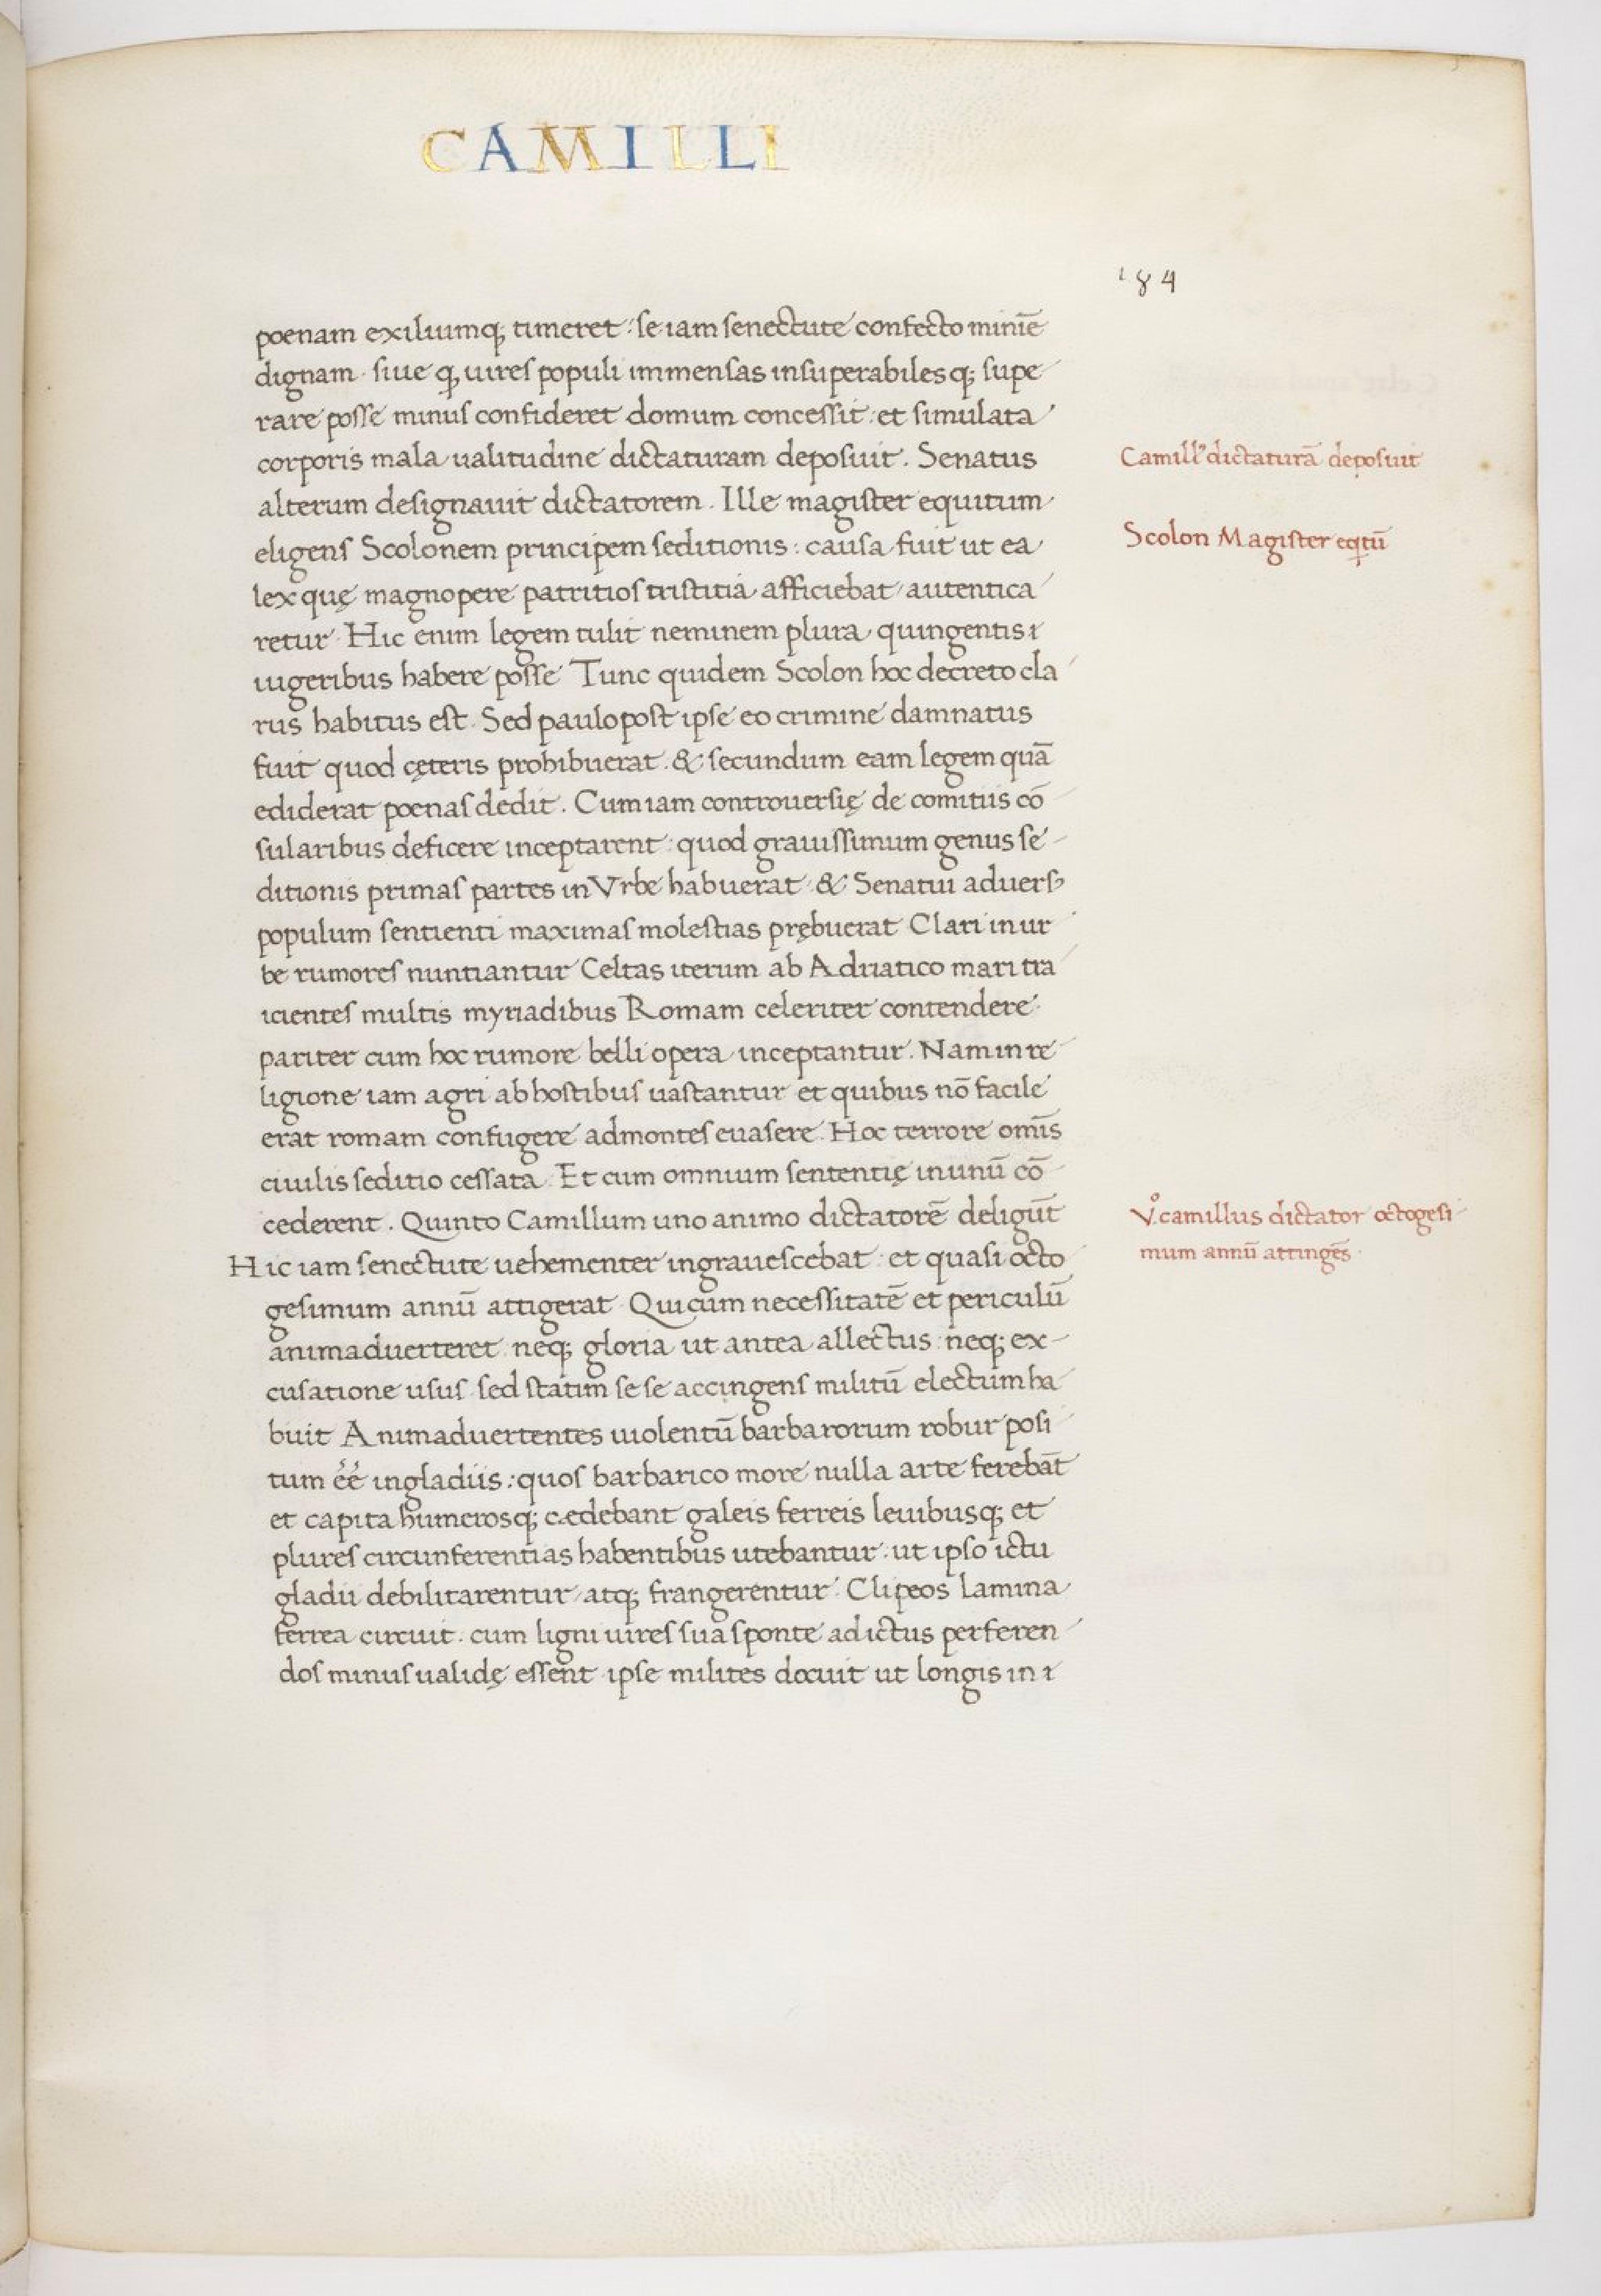 CAMILLI
184
poenam exiliumq; timeret: se iam senectute confecto miniē
dignam. siue q uires populi immensas insuperabilesq; supe
rare posse minus confideret domum concessit: et simulata
corporis mala ualitudine dictaturam deposuit. Senatus
Camill⁹ dictaturā deposuit
alterum designauit dictatorem. Ille magister equitum
eligens Scolonem principem seditionis: causa fuit ut ea
Scolon Magister eqtū
lex quę magnopere patritios tristitia afficiebat autentica
retur. Hic enim legem tulit neminem plura quingentis i
iugeribus habere posse Tunc quidem Scolon hoc decreto cla
rus habitus est. Sed paulo post ipse eo crimine damnatus
fuit quod cęteris prohibuerat. & secundum eam legem quā
ediderat poenas dedit. Cum iam controuersię de comitiis cō
sularibus deficere inceptarent: quod grauissimum genus se
ditionis primas partes in Vrbe habuerat. & Senatui aduers⁹
populum sentienti maximas molestias prębuerat Clari in ur
be rumores nuntiantur Celtas iterum ab Adriatico mari tra
icientes multis myriadibus Romam celeriter contendere.
pariter cum hoc rumore belli opera inceptantur. Nam in re
ligione iam agri ab hostibus uastantur et quibus nō facile
erat romam confugere ad montes euasere. Hoc terrore omīs
ciuilis seditio cessata. Et cum omnium sententię in unū cō
cederent. Quinto Camillum uno animo dictatorē deligūt
V.º camillus dictator octogesi
mum annū attingēs.
Hic iam senectute uehementer ingrauescebat: et quasi octo
gesimum annū attigerat. Qui cum necessitatē et periculū
animaduerteret. neq; gloria ut antea allectus: neq; ex
cusatione usus. sed statim se se accingens militū electum ha
buit Animaduertentes uiolentū barbarorum robur posi
tum ēē in gladiis: quos barbarico more nulla arte ferebāt
et capita humerosq; cædebant galeis ferreis leuibusq; et
plures circunferentias habentibus utebantur: ut ipso ictu
gladii debilitarentur atq; frangerentur. Clipeos lamina
ferrea circuit. cum ligni uires sua sponte ad ictus perferen
dos minus ualidę essent. ipse milites docuit ut longis in i